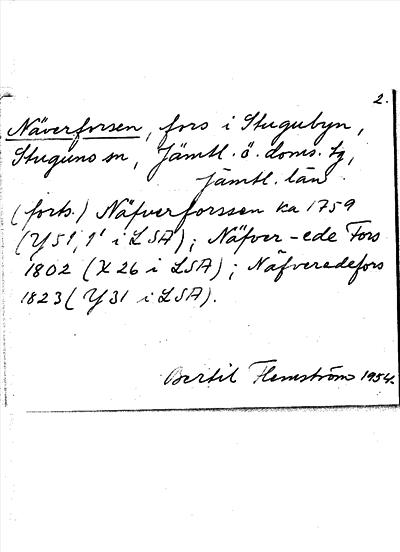 2.
Näverforsen, fors i Stugubyn,
Stuguns sn, Jämtl. ö. doms. tg,
Jämtl. län
(forts.) Näfverforssen ka 1759
(Y51', 1' i LSA); Näfver-ede Fors
1802 (X26 i LSA); Näfveredefors
1823 (Y31 i LSA).
Bertil Flemström 1954.